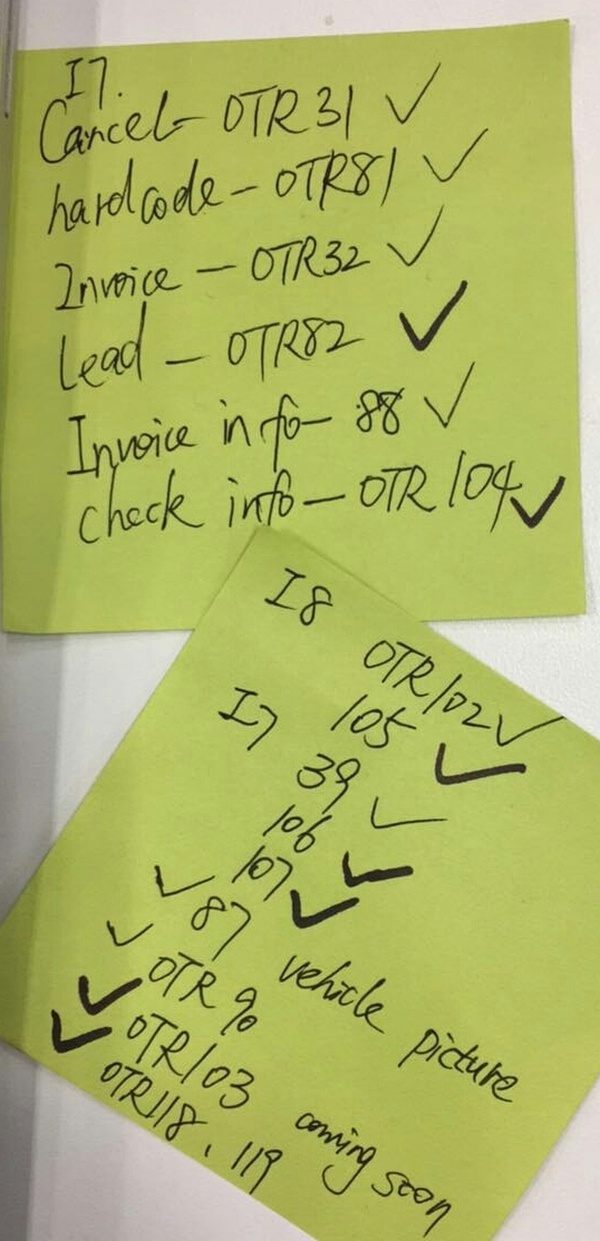 I7.
Cancel - OTR31 ✓
hardcode - OTR81 ✓
Invoice - OTR32 ✓
Lead - OTR82 ✓
Invoice info - 88 ✓
check info - OTR104 ✓
I8
OTR102 ✓
I7 105 ✓
39 ✓
106 ✓
107 ✓
✓ 87 vehicle picture
✓ OTR90
✓ OTR103 coming soon
✓ OTR118, 119